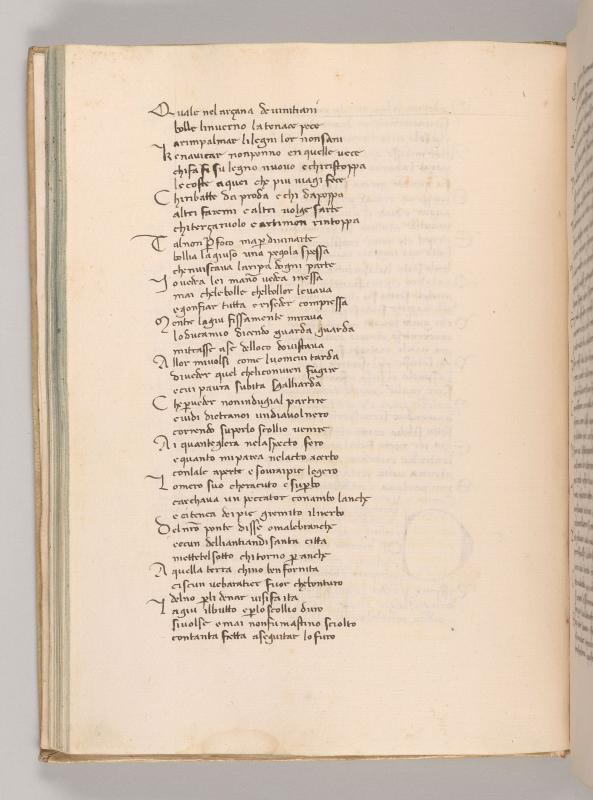 Quale nel arçana de vinitiani
bolle linverno la tenace pece
a rimpalmar li legni lor non sani
K e navicar non ponno e n quelle vece
chi fa si su legno nuovo e chi ristoppa
le coste a quei che piu viagi fece
C hi ribatte da proda e chi da poppa
altri fa remi e altri volge sarte
chi terçaruolo e artimon rintoppa
T al non p foco ma p divin arte
bollia la giuso una pegola spessa
che nviscava la ripa dogni parte
I o vedea lei ma nō vedea inessa
mai chele bolle chel bollor levava
e gonfiar tutta e riseder compressa
M entre la giu fissamente mirava
lo duca mio dicendo guarda guarda
mi trasse a se del loco dovistava
A llor mi volsi come luom cui tarda
di veder quel cheli convien fugire
e cui paura subita sgalliarda
C he p veder non indugial partire
e vidi dietra noi un diavol nero
correndo su per lo scollio venire
A i quantegliera nelaspecto fero
e quanto mi parea nelacto acerbo
con lale aperte e sovra i pie legero
L omero suo cheracuto e supbo
carchava un peccator con ambo lanche
e ei tenea dei pie gremito il nerbo
D el nrō ponte disse o malebranche
eccun delli antian di santa citta
mettetel sotto chi torno p anche
A quella terra chi no ben fornita
ciscun ve baratier fuor che bonturo
I del no p li denar vi si fa ita
L a giu il butto e p lo scollio duro
si volse e mai non fu mastino sciolto
con tanta fretta a seguitar lo furo